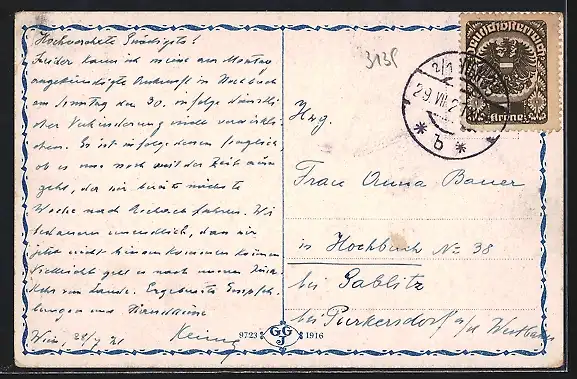 Hochverehrte Gnädigste!
Leider kann ich meine am Montag
angekündigte Ankunft in Hochbuch
am Sonntag den 30. infolge dienstli-
cher Verhinderung nicht verwirkli-
chen. Es ist infolgedessen fraglich,
ob es uns noch mit der Zeit aus-
geht, da wir bereits nächste
Woche nach fahren. Wir
bedauern unendlich, dass wir
jetzt nicht hinaus kommen können
Vielleicht geht es nach meiner Rück-
kehr vom Lande. Ergebenste Empfeh-
lungen und Handküsse
Wien, 28/7 21
3135
Deutschösterreich
Krone
29.VII.2
* b *
Hwg.
Frau Anna Bauer
in Hochbuch Nr. 38
bei Gablitz
bei Purkersdorf a/d Westbahn
9723 GGJ 1916